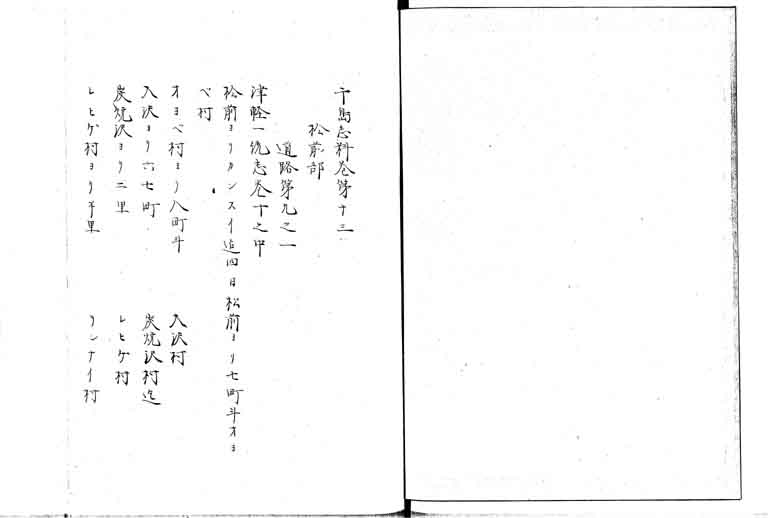 千島志料巻第十三
松前部
道路第九之一
津軽一統志巻十之中
松前ヨリカンスイ迄四日松前ヨリ七町斗オヨ
ベ村
オヨベ村ヨリ八町斗　入沢村
入沢ヨリ六七町　炭焼沢村迄
炭焼沢ヨリ二里　レヒゲ村
レヒゲ村ヨリ半里　リンナイ村